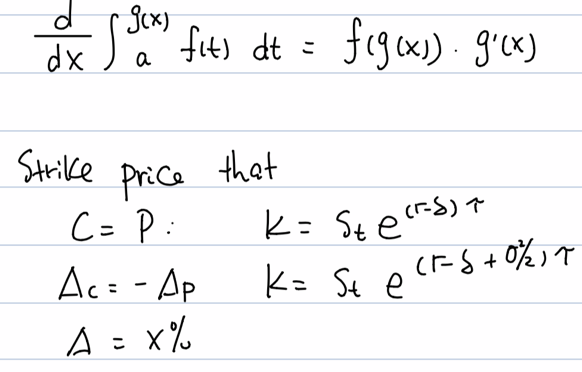 d/dx ∫_a^{g(x)} f(t) dt = f(g(x)) · g'(x)
Strike price that
C = P : K = S_t e^{(r-δ)τ}
Δ_C = - Δ_P K = S_t e^{(r-δ + σ²/2)τ}
Δ = x%